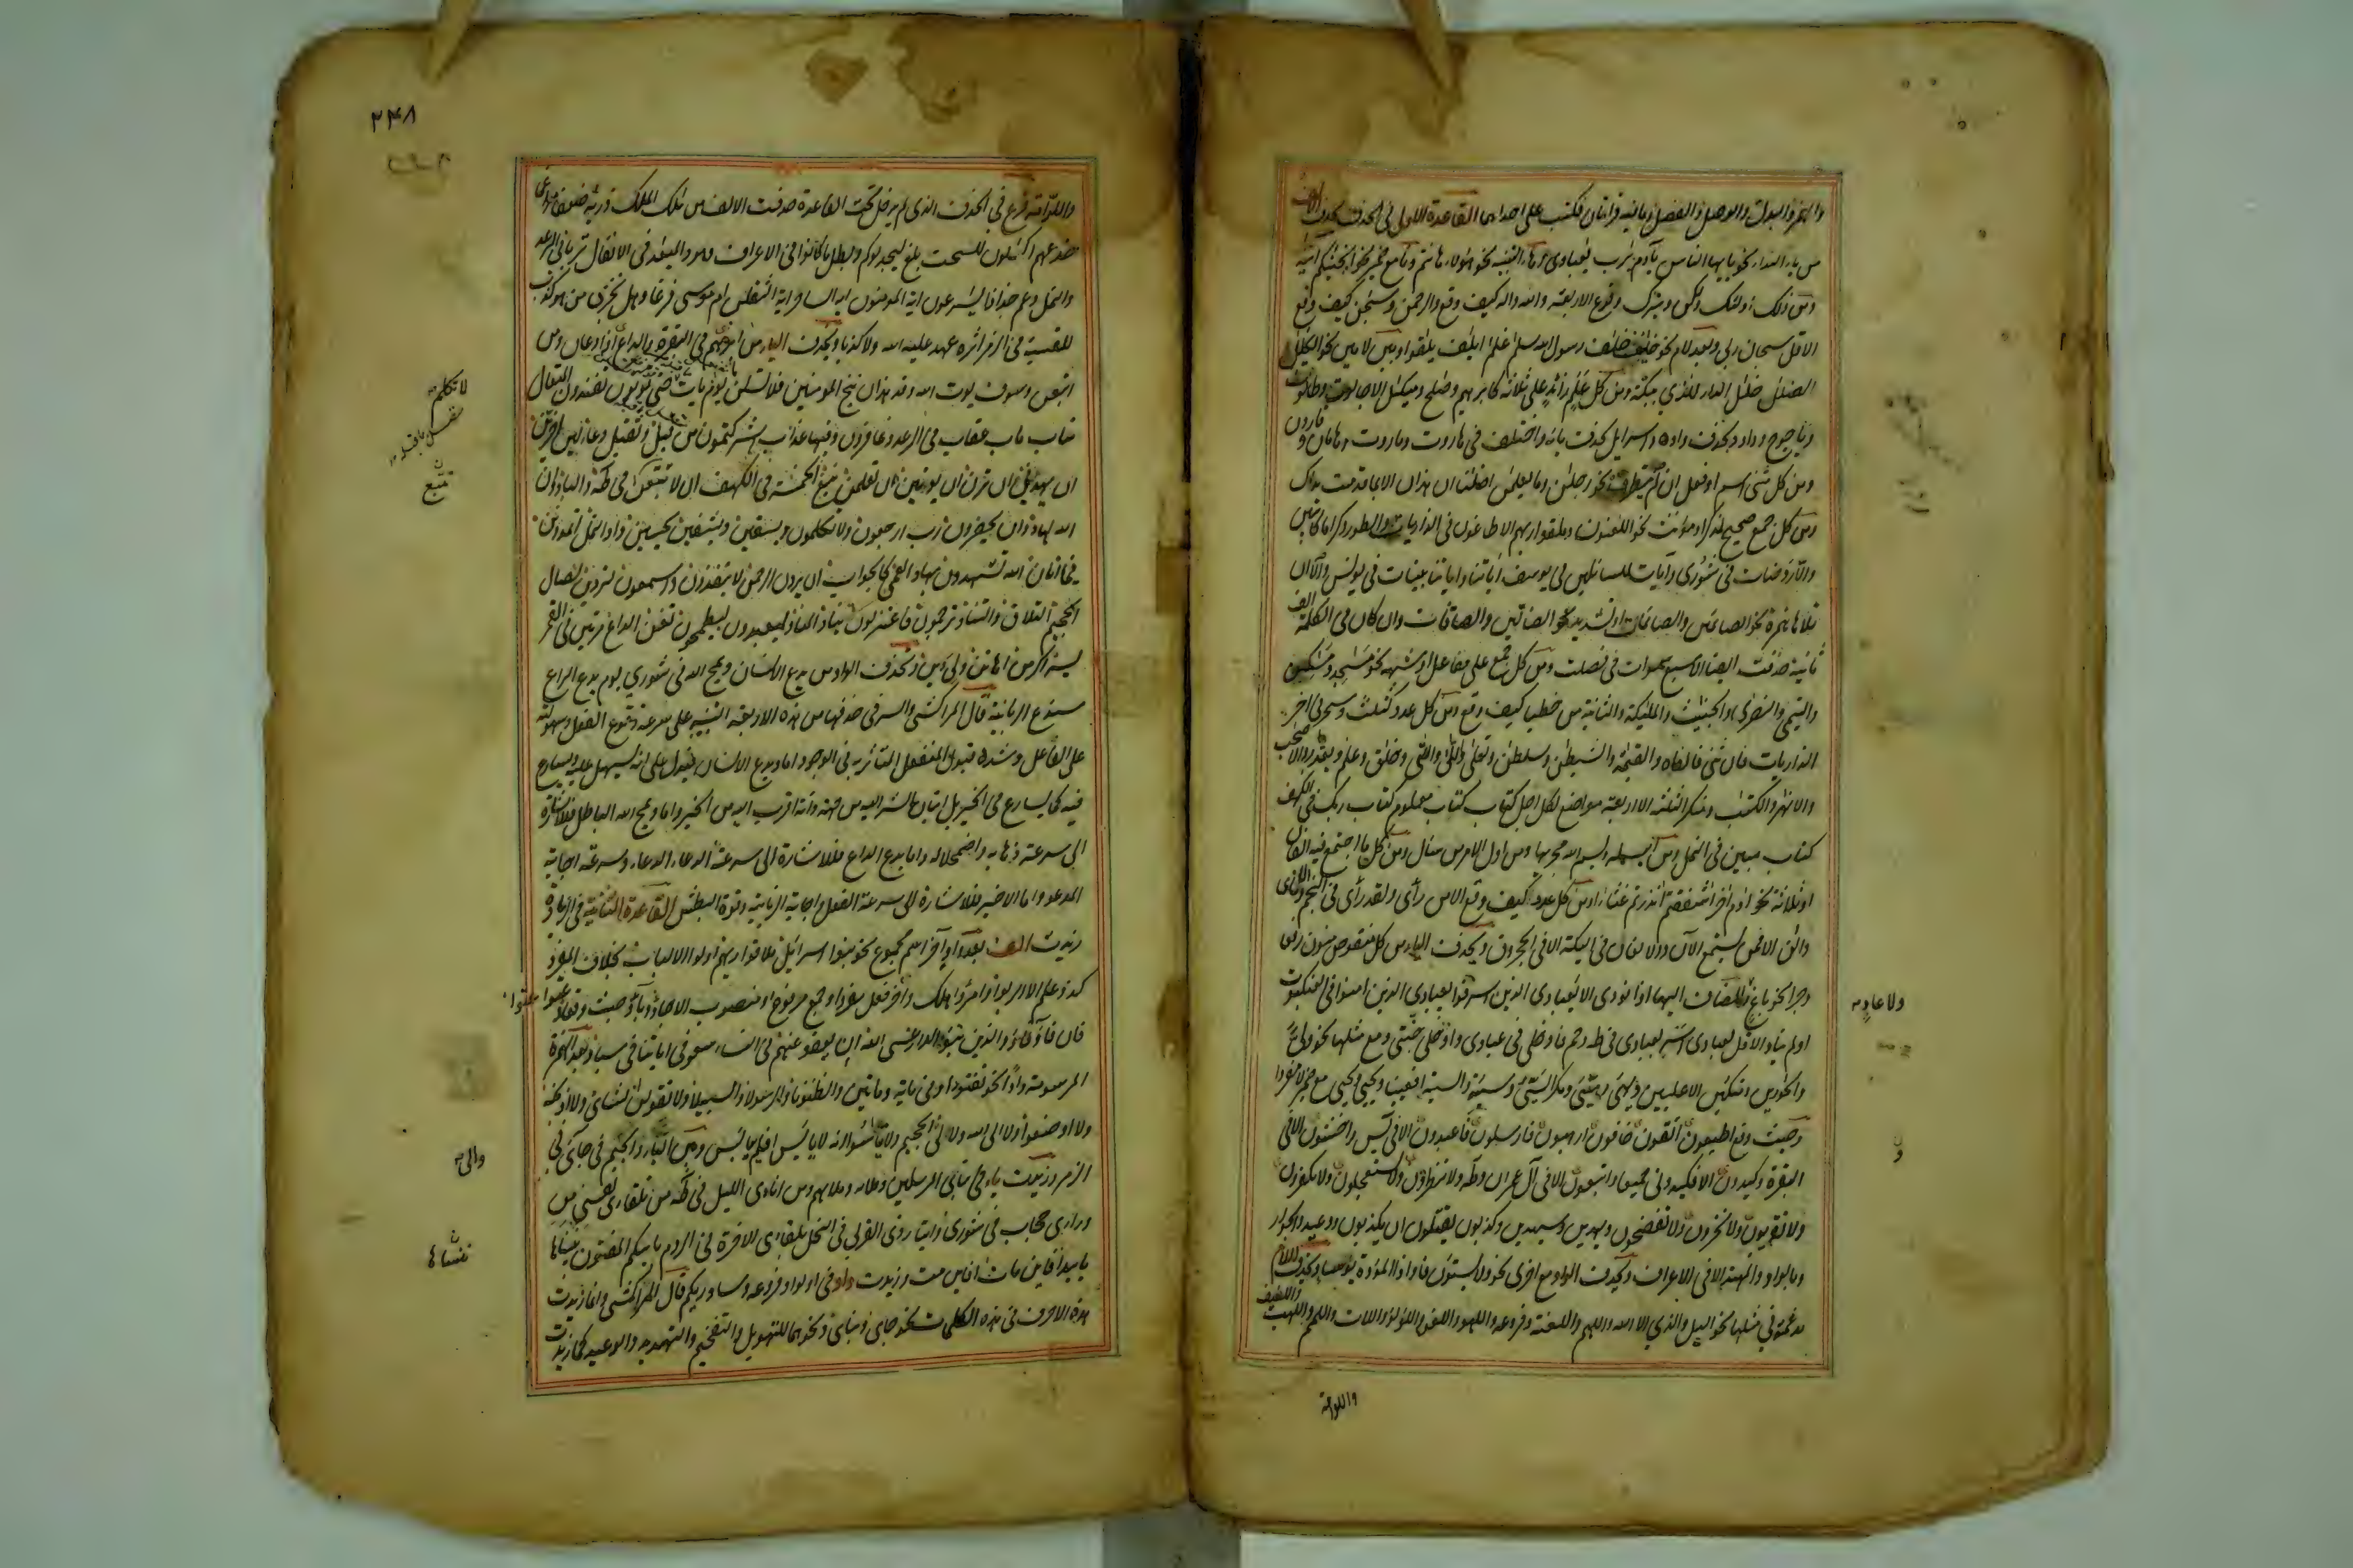 والهمز والبدل والوصل والفصل وما فيه قراءتان فكتب على احداهما القاعدة الاولى في الحذف تحذف الالف
من ياء النداء نحو يايها الناس يآدم يرب يعبادى وهاء التنبيه نحو هؤلاء هانتم ونا مع ضمير نحو انجينكم آتينه
ومن ذلك اولئك ولكن وتبرك وفروع الاربعة والله واله كيف وقع والرحمن وسبحن كيف وقع
الا قل سبحان ربي وبعد لام نحو خلئف خلف رسول الله سلم غلم ايلف يلقوا وبين لامين نحو الكلل
الضلل خلل الديار للذي ببكة ومن كل علم زائد على ثلاثة كابرهيم وصلح وميكل الا جالوت وطالوت
وياجوج وداود لحذف واوه واسرايل لحذف يائه واختلف في هاروت وماروت وهامان وقارون
ومن كل مثنى اسم او فعل ان لم يتطرف نحو رجلن وما يعلمن اضلنا ان هذان الا بما قدمت يداك
ومن كل جمع صحيح لمذكر او مؤنث نحو اللعنون وملقوا ربهم الا طاغون في الذاريات والطور وكراما كاتبين
والا روضات في شورى وآيات للسائلين في يوسف اياتنا واياتنا بينات في يونس والا ان
تلاها همزة نحو الصائمين والصائمات او تشديد نحو الضالين والصافات وان كان في الكلمة الف
ثانية حذفت ايضا الا سبع سموات في فصلت ومن كل جمع على مفاعل او شبهه نحو مسجد ومسكين
واليتمى والنصرى والخبئث والملئكة والثانية من خطايا كيف وقع ومن كل عدد كثلث وسحر الا في اخر
الذاريات فان ثنى فالفاه والقيمة والشيطن وسلطن وتعلى والتي والتى وخلق وعلم وبقدر والاصحب
والانهر والكتب ومنكر الثلثة الا اربعة مواضع لكل اجل كتاب كتاب معلوم كتاب ربك في الكهف
كتاب مبين في النمل ومن البسملة وبسم الله مجريها ومن اول الامر من سأل ومن كل ما اجتمع فيه الفان
او ثلاثة نحو ادم اخر اشفقتم انذرتهم غثاء ومن كل عدد كيف وقع الا من رأى ولقد رأى في النجم والا نأى
والئن الا فمن يستمع الآن والالفان في ليكة الا في الحجر وق وتحذف الياء من كل منقوص منون رفعا
وجرا نحو باغ والمضاف اليها اذا نودى الا يعبادى الذين اسرفوا يعبادى الذين امنوا في العنكبوت
او لم يناد الا قل لعبادى اسر بعبادى في طه وحم فادخلى في عبادى وادخلى جنتى ومع مثلها نحو ولى
والحوارين ومتكئين الا عليين ويهيئ وهيئ ومكر السيئ وسيئة والسيئة افعيينا ويحيى ويحيى مع ضمير لا مفردا
وحيث وقع اطيعون اتقون خافون ارهبون فارسلون فاعبدون الا في يس واخشون الا في
البقرة وكيدون الا فكيدونى جميعا واتبعون الا في آل عمران وطه ولا تنظرون ولا تستعجلون ولا تكفرون
ولا تقربون ولا تخزون ولا تفضحون ويهدين وسيهدين وكذبون يقتلون ان يكذبون ووعيد والجوار
وبالواد والمهتد الا في الاعراف وتحذف الواو مع اخرى نحو ولا يستون فاوا واذا الموؤدة يؤسا وتحذف اللام
مدغمة في مثلها نحو اليل والذي الا الله واللهم واللعنة وفروعه واللهو واللغو واللؤلؤ واللات واللمم واللهب واللطيف
واللوامة
ولا عاد
ن
٢٤٨
واللوامة فرع في الحذف الذي لم يدخل تحت القاعدة حذفت الالف من ملك الملك ذرية ضعفا مراغما
خدعهم اكلون للسحت بلغ ليجدلوكم وبطل ما كانوا في الاعراف وهود الميعد في الانفال تربا في الرعد
والنمل وعم جذذا يسرعون ايه المومنون ايه الساحر ايه الثقلن ام موسى فرغا وهل نجزى من هو كذب
للقسية في الزمر اثره عهد عليه الله ولا كذبا وتحذف الياء من ابرهم في البقرة والداع اذا دعان ومن
اتبعن وسوف يوت الله وقد هدان ننج المومنين فلا تسئلن يوم يات حتى توتون تفندون المتعال
متاب ماب عقاب في الرعد وغافر وص وفيها عذاب اشركتمون من قبل وتقبل دعاء لئن اخرتن
ان يهدين ان ترن ان يوتين ان تعلمن نبغ الخمسة في الكهف ان لا تتبعن في طه والباد وان
الله لهاد وان يحضرون رب ارجعون ولا تكلمون ويسقين ويشفين يحيين واد النمل اتمدونن
فما اتان الله تشهدون بهاد العمى كالجواب ان يردن الرحمن لا ينقذون واسمعون لتردين لصال
الجحيم التلاق والتناد ترجمون فاعتزلون يناد المناد ليعبدون يطعمون تغن الداع مرتين في القمر
يسر اكرمن اهانن ولى دين وتحذف الواو من يدع الانسان ويمح الله في شورى يوم يدع الداع
سندع الزبانية قال المراكشى والسر في حذفها من هذه الاربعة التنبيه على سرعة وقوع الفعل وسهولته
على الفاعل وشدة قبول المنفعل المتاثر به في الوجود اما ويدع الانسان فيدل على انه سهل عليه ويسارع
فيه كما يسارع في الخير بل اثبات الشر اليه من جهة ذاته اقرب اليه من الخير واما ويمح الله الباطل فللاشارة
الى سرعة ذهابه واضمحلاله واما يدع الداع فللاشارة الى سرعة الدعاء وسرعة اجابة
المدعو واما الاخير فللاشارة الى سرعة الفعل واجابة الزبانية وقوة البطش القاعدة الثانية في الزيادة
زيدت الف بعد الواو آخر اسم مجموع نحو بنوا اسرائيل ملاقوا ربهم اولوا الالباب بخلاف المفرد
كذو علم الا الربوا وامرؤا هلك وآخر فعل مفرد او جمع مرفوع او منصوب الا جاؤ وباؤ حيث وقعا وعتوا عتوا
فان فاؤ والذين تبوؤ الدار عسى الله ان يعفو عنهم في النساء سعو في اياتنا في سبا وبعد الهمزة
المرسومة واوا نحو تفتوا وفى مائة ومائتين والظنونا والرسولا والسبيلا ولا تقولن لشائ ولا اذبحنه
ولا اوضعوا ولا الى الله ولا الى الجحيم ولا تايئسوا انه لا يايئس افلم يايئس وبين الياء والجيم في جائ في
الزمر وزيدت ياء في نبائ المرسلين وملائه وملائهم ومن انائ الليل في طه من تلقائ نفسى من
ورائ حجاب في شورى وايتائ ذى القربى في النحل ولقائ الاخرة في الروم باييكم المفتون بنيناها
باييد افاين مات افاين مت وزيدت واو في اولوا وفروعه وساوريكم قال المراكشى وانما زيدت
هذه الاحرف في هذه الكلمات نحو جائ ونبائ ونحوهما للتهويل والتفخيم والتهديد والوعيد كما زيدت
لا تكلم
نفس
نتبع
والى
ننساها